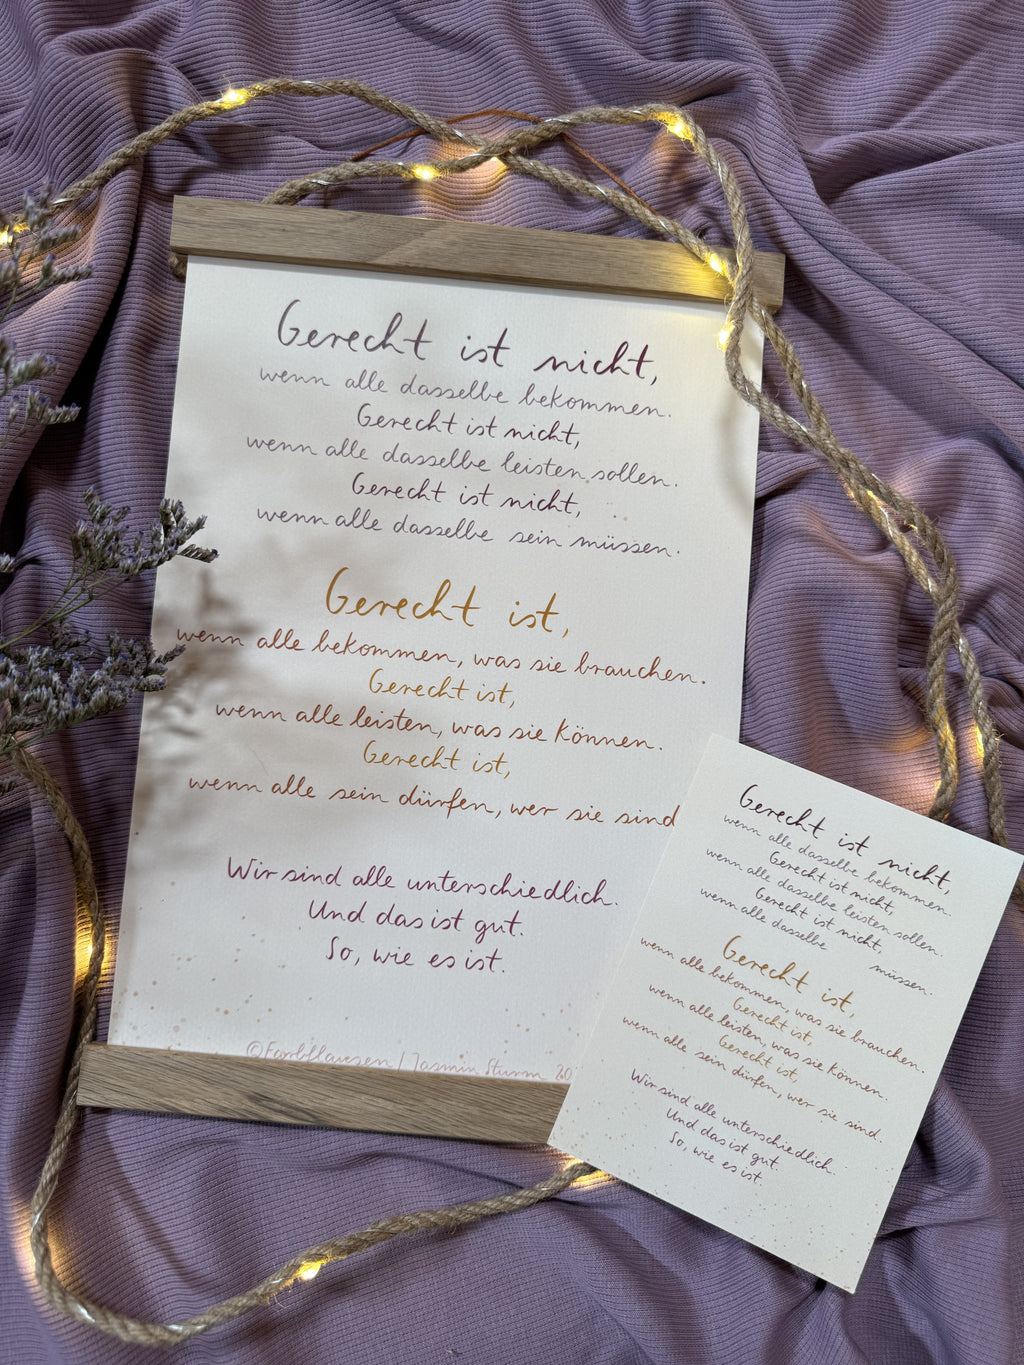 Gerecht ist nicht,
wenn alle dasselbe bekommen.
Gerecht ist nicht,
wenn alle dasselbe leisten sollen.
Gerecht ist nicht,
wenn alle dasselbe sein müssen.
Gerecht ist,
wenn alle bekommen, was sie brauchen.
Gerecht ist,
wenn alle leisten, was sie können.
Gerecht ist,
wenn alle sein dürfen, wer sie sind
Wir sind alle unterschiedlich.
Und das ist gut.
So, wie es ist.
©Farbflausen | Jasmin Sturm 20
Gerecht ist nicht,
wenn alle dasselbe bekommen.
Gerecht ist nicht,
wenn alle dasselbe leisten sollen.
Gerecht ist nicht,
wenn alle dasselbe müssen.
Gerecht ist,
wenn alle bekommen, was sie brauchen.
Gerecht ist,
wenn alle leisten, was sie können.
Gerecht ist,
wenn alle sein dürfen, wer sie sind.
Wir sind alle unterschiedlich.
Und das ist gut.
So, wie es ist.